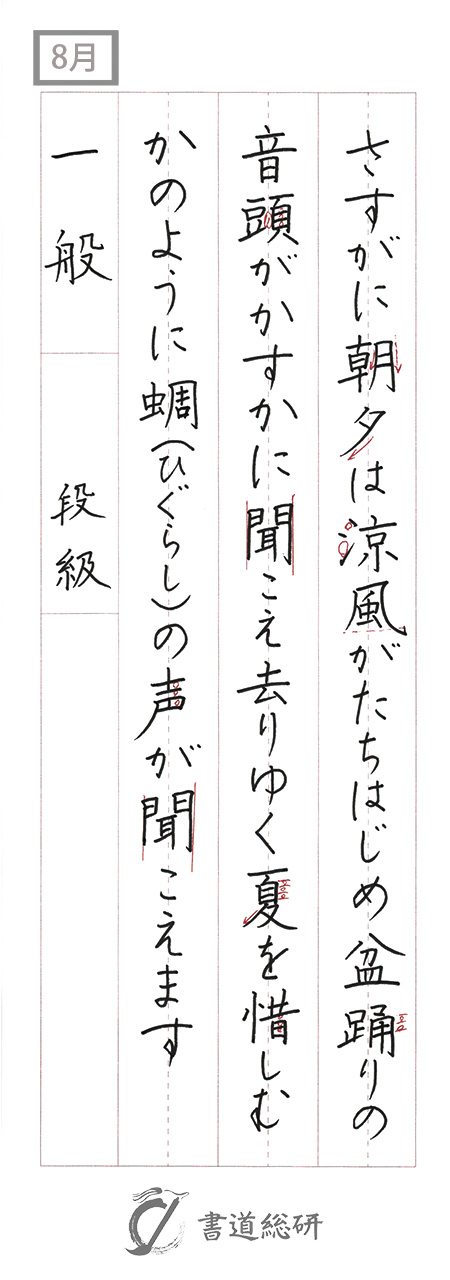 8月
さすがに朝夕は涼風がたちはじめ盆踊りの
音頭がかすかに聞こえ去りゆく夏を惜しむ
かのように蜩(ひぐらし)の声が聞こえます
一般
段級
書道総研